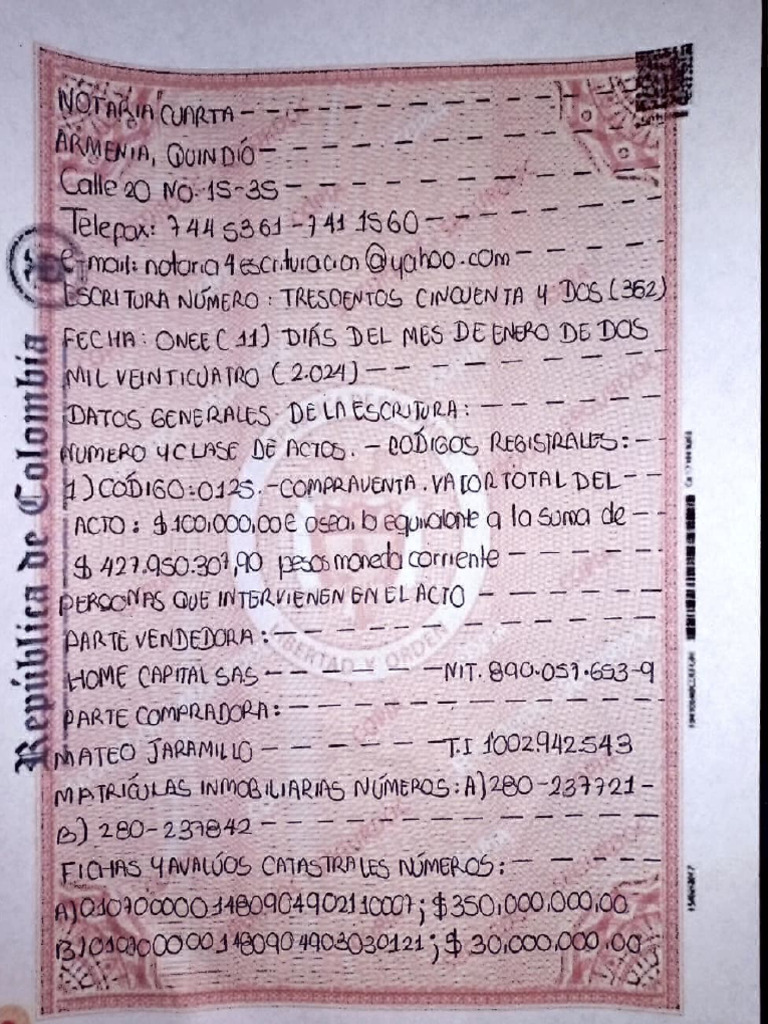 NOTARIA CUARTA - - - - - - - - - - -
ARMENIA, QUINDIÓ - - - - - - - - - - -
Calle 20 NO. 15-35 - - - - - - - - - -
Telepax: 744 5361 - 741 1560 - - - - - - -
e-mail: notaria4escrituracion@yahoo.com - - - - -
ESCRITURA NÚMERO: TRESCIENTOS CINCUENTA Y DOS (352)
FECHA: ONCE (11) DIÁS DEL MES DE ENERO DE DOS
MIL VEINTICUATRO (2.024) - - - - - - - -
DATOS GENERALES DE LA ESCRITURA: - - - - - -
NUMERO Y CLASE DE ACTOS. - CÓDIGOS REGISTRALES: - -
1) CÓDIGO: 0125. - COMPRAVENTA. VALOR TOTAL DEL - -
ACTO: $ 100,000,00€ osea, lo equivalente a la suma de - -
$ 427.950.307,90 pesos moneda corriente - - - - -
PERSONAS QUE INTERVIENEN EN EL ACTO - - - - - -
PARTE VENDEDORA: - - - - - - - - - - -
HOME CAPITAL SAS - - - - - - NIT. 890.057.653-9
PARTE COMPRADORA: - - - - - - - - - - -
MATEO JARAMILLO - - - - - - T.I 1002942543
MATRÍCULAS INMOBILIARIAS NÚMEROS: A) 280-237721 -
B) 280-237842 - - - - - - - - - - -
FICHAS Y AVALÚOS CATASTRALES NÚMEROS: - - - - -
A) 0107000001480904902110007; $350,000,000,00
B) 0107000001480904903030121; $ 30,000,000.00
República de Colombia
LIBERTAD Y ORDEN